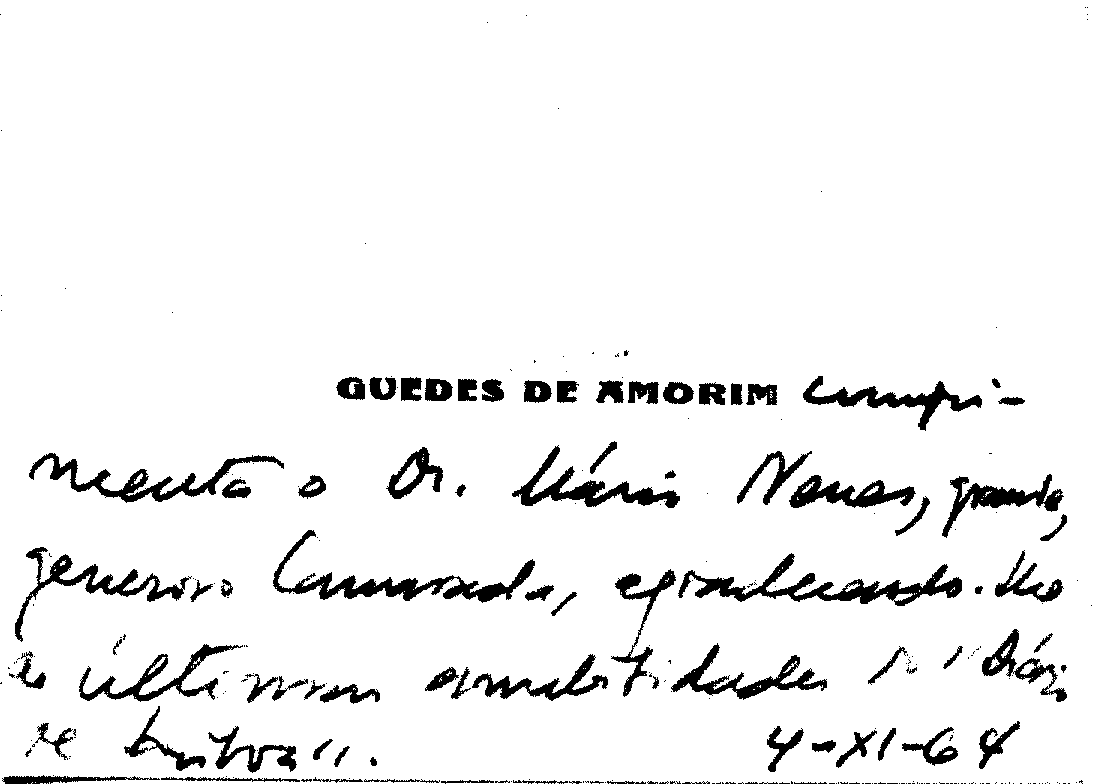 GUEDES DE AMORIM cumpri-
menta o Dr. Mário Neves, grande,
generoso Camarada, agradecendo-lhe
as últimas amabilidades do "Diário
de Lisboa".        4-XI-64